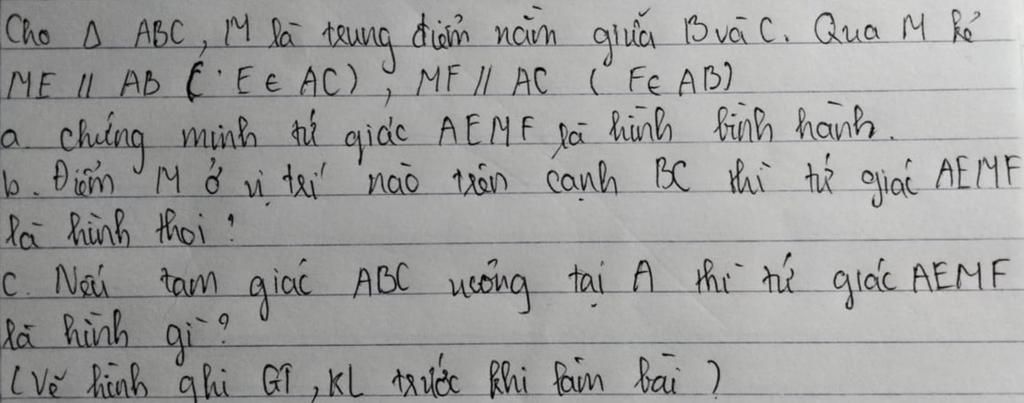 Cho Δ ABC, M là trung điểm nằm giữa B và C. Qua M kẻ
ME // AB (E ∈ AC), MF // AC (F ∈ AB)
a. chứng minh tứ giác AEMF là hình bình hành.
b. Điểm M ở vị trí nào trên cạnh BC thì tứ giác AEMF
là hình thoi?
C. Nếu tam giác ABC vuông tại A thì tứ giác AEMF
là hình gì?
(Vẽ hình ghi GT, KL trước khi làm bài)